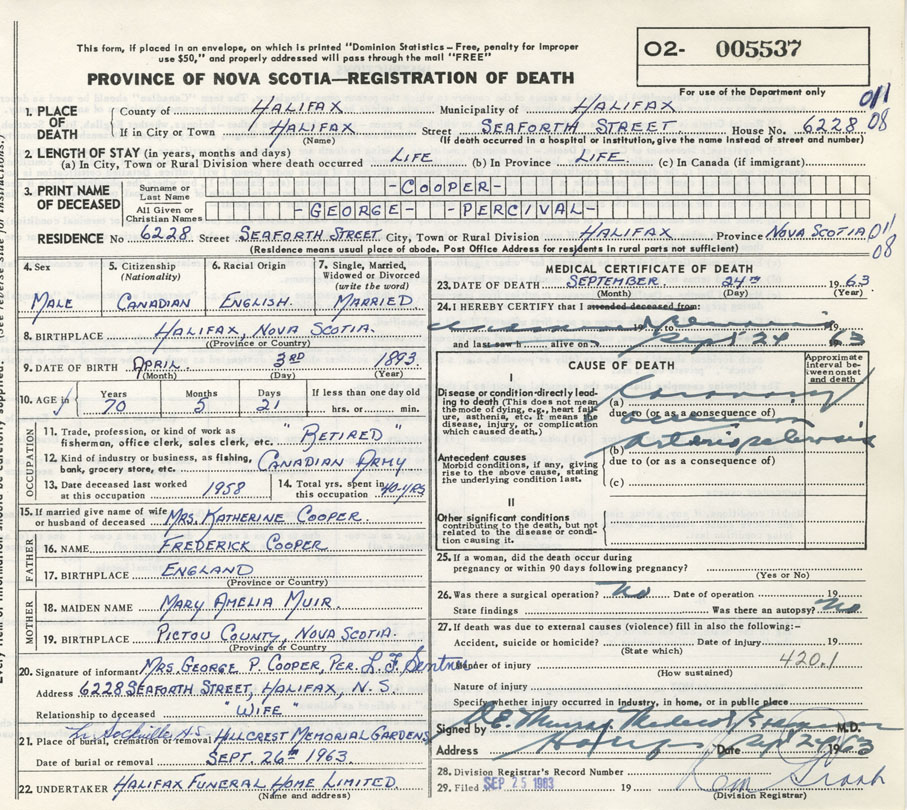 This form, if placed in an envelope, on which is printed "Dominion Statistics – Free, penalty for improper
use $50," and properly addressed will pass through the mail "FREE"
PROVINCE OF NOVA SCOTIA—REGISTRATION OF DEATH
O2- 005537
For use of the Department only
1. PLACE OF DEATH County of HALIFAX Municipality of HALIFAX 011
If in City or Town HALIFAX Street SEAFORTH STREET House No. 6228 08
(Name) (If death occurred in a hospital or institution, give the name instead of street and number)
2. LENGTH OF STAY (in years, months and days)
(a) In City, Town or Rural Division where death occurred LIFE (b) In Province LIFE. (c) In Canada (if immigrant)
3. PRINT NAME OF DECEASED Surname or Last Name -COOPER-
All Given or Christian Names -GEORGE- -PERCIVAL-
RESIDENCE No 6228 Street SEAFORTH STREET City, Town or Rural Division HALIFAX Province NOVA SCOTIA 011
(Residence means usual place of abode. Post Office Address for residents in rural parts not sufficient) 08
4. Sex MALE
5. Citizenship (Nationality) CANADIAN
6. Racial Origin ENGLISH.
7. Single, Married, Widowed or Divorced (write the word) MARRIED
8. BIRTHPLACE HALIFAX, NOVA SCOTIA.
(Province or Country)
9. DATE OF BIRTH APRIL 3RD 1893
(Month) (Day) (Year)
10. AGE in Years 70 Months 5 Days 21 If less than one day old hrs. or min.
OCCUPATION
11. Trade, profession or kind of work as fisherman, office clerk, sales clerk, etc. "RETIRED"
12. Kind of industry or business, as fishing, bank, grocery store, etc. CANADIAN ARMY
13. Date deceased last worked at this occupation 1958
14. Total yrs. spent in this occupation 40-YRS
15. If married give name of wife or husband of deceased MRS. KATHERINE COOPER.
FATHER
16. NAME FREDERICK COOPER
17. BIRTHPLACE ENGLAND
(Province or Country)
MOTHER
18. MAIDEN NAME MARY AMELIA MUIR
19. BIRTHPLACE PICTOU COUNTY, NOVA SCOTIA.
(Province or Country)
20. Signature of informant MRS. GEORGE P. COOPER, PER. L. F.
Address 6228 SEAFORTH STREET, HALIFAX, N.S.
Relationship to deceased "WIFE"
21. Place of burial, cremation or removal HILLCREST MEMORIAL GARDENS
Date of burial or removal SEPT. 26th 1963
22. UNDERTAKER HALIFAX FUNERAL HOME LIMITED
(Name and address)
MEDICAL CERTIFICATE OF DEATH
23. DATE OF DEATH SEPTEMBER 24TH 1963
(Month) (Day) (Year)
24. I HEREBY CERTIFY that I attended deceased from:
19 to
and last saw h alive on Sept 24 63
CAUSE OF DEATH
Approximate interval between onset and death
I
Disease or condition directly leading to death (This does not mean the mode of dying, e.g., heart failure, asthenia, etc. It means the disease, injury, or complication which caused death.)
(a) Coronary
due to (or as a consequence of) occlusion
Antecedent causes
Morbid conditions, if any, giving rise to the above cause, stating the underlying condition last.
(b) Arteriosclerosis
due to (or as a consequence of)
(c)
II
Other significant conditions
contributing to the death, but not related to the disease or condition causing it.
25. If a woman, did the death occur during
pregnancy or within 90 days following pregnancy?
(Yes or No)
26. Was there a surgical operation? No Date of operation 19
State findings Was there an autopsy? No
27. If death was due to external causes (violence) fill in also the following:–
Accident, suicide or homicide? Date of injury 19
(State which)
Manner of injury 420.1
(How sustained)
Nature of injury
Specify whether injury occurred in industry, in home, or in public place
Signed by Murray Medical Examiner M.D.
Address Date Sept 24 1963
28. Division Registrar's Record Number
29. Filed SEP 25 1963 19
(Division Registrar)